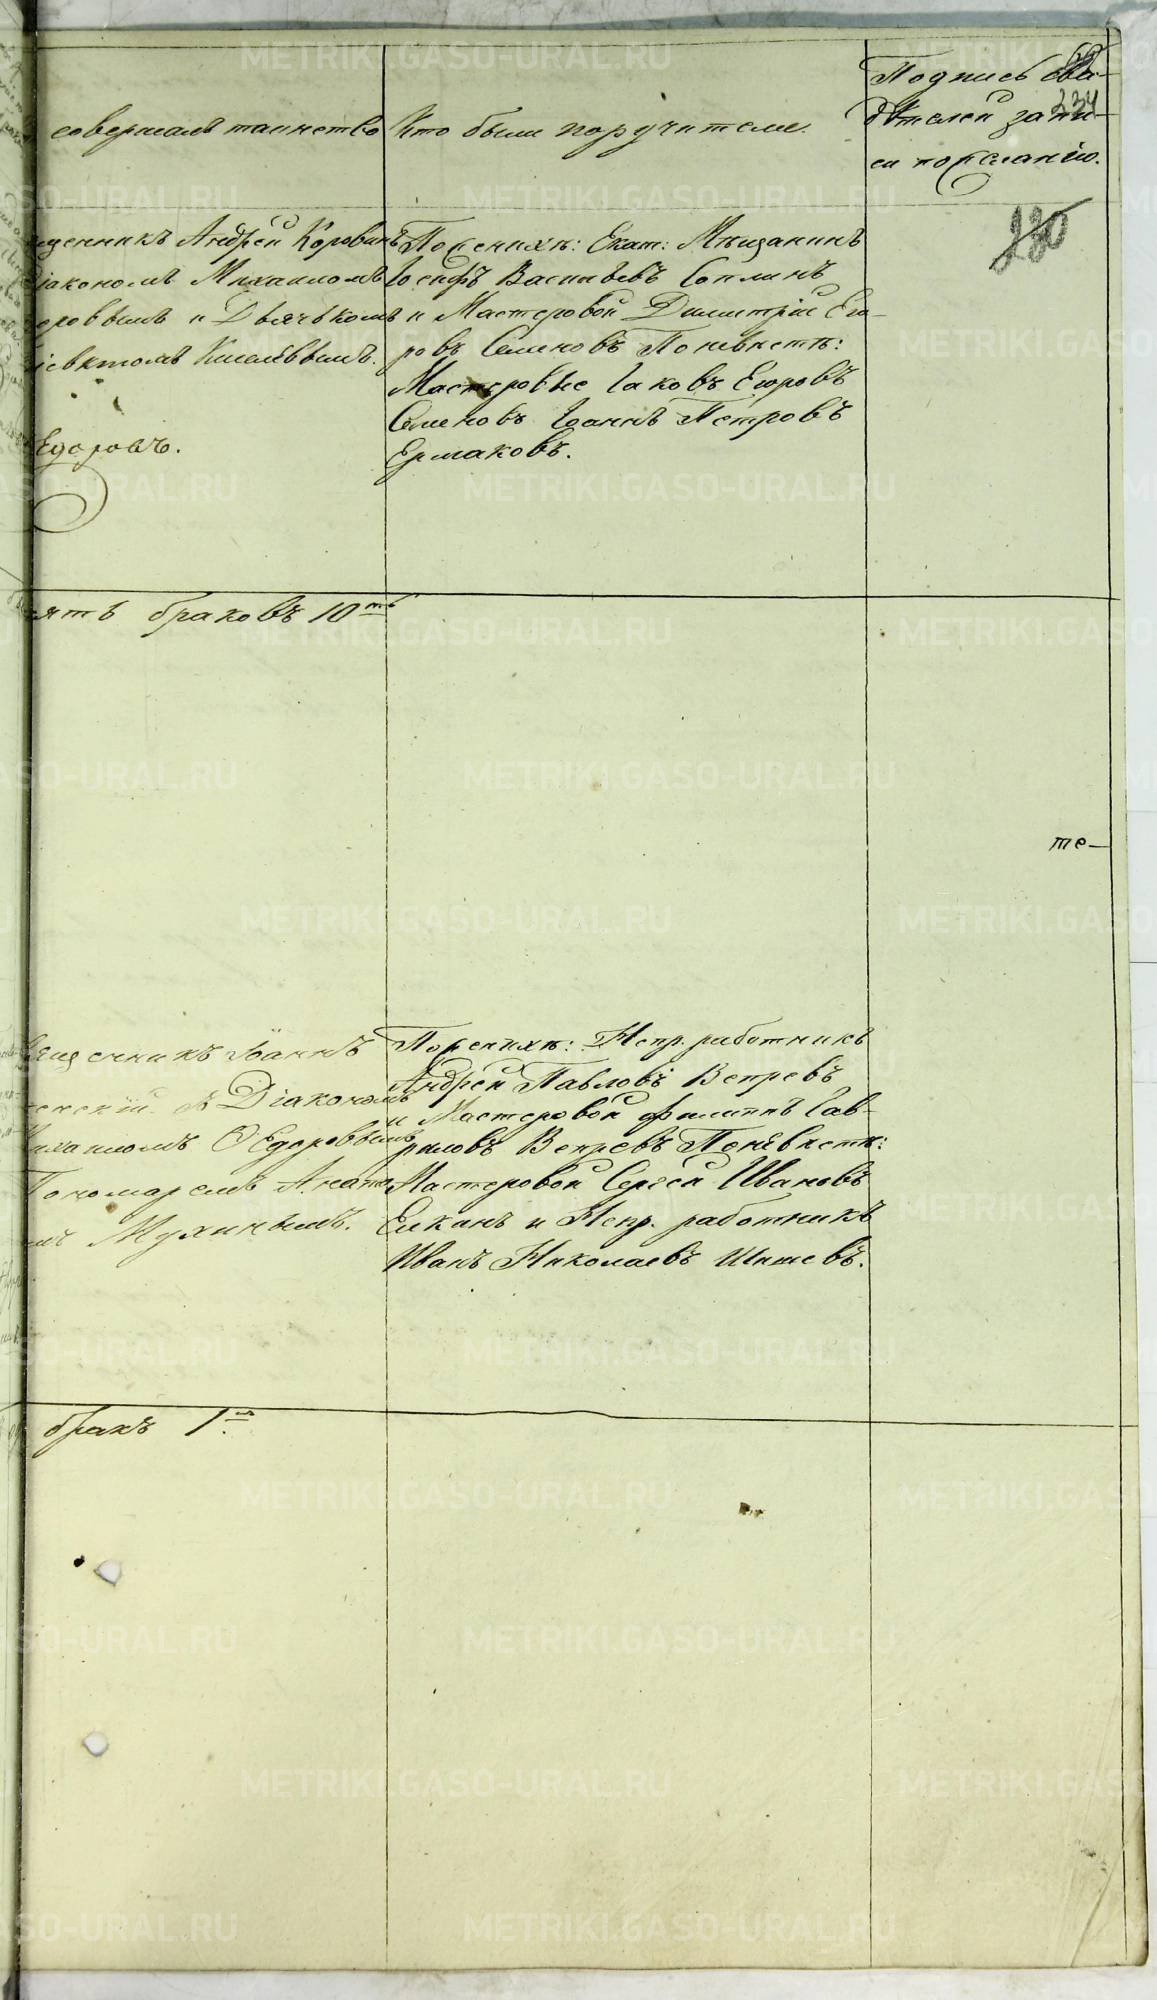 совершалъ таинство
Кто были поручители.
Подпись сви-
дѣтелей запи-
си по желанію.
234
230
щенникъ Андрей Коровинъ
Діакономъ Михаиломъ
оровымъ и Дьячькомъ
Киселёвымъ.
Ѳедоровъ.
По женихѣ: Екат: Мѣщанинъ
Іосифъ Васильевъ Соплинъ
и Мастеровой Димитрій Его-
ровъ Семеновъ По невѣстѣ:
Мастеровые Іаковъ Егоровъ
Семеновъ Іоаннъ Петровъ
Ермаковъ.
ять браковъ 10ть
те-
щенникъ Іоаннъ
Діакономъ
Михаиломъ Ѳедоровымъ
Пономаремъ
Мухинымъ.
По женихѣ: Непр. работникъ
Андрей Павловъ Вепревъ
и Мастеровой Филиппъ Гав-
риловъ Вепревъ По невѣстѣ:
Мастеровой Сергей Ивановъ
Елкинъ и Непр. работникъ
Иванъ Николаевъ Шишевъ.
бракъ 1нъ.
METRIKI.GASO-URAL.RU